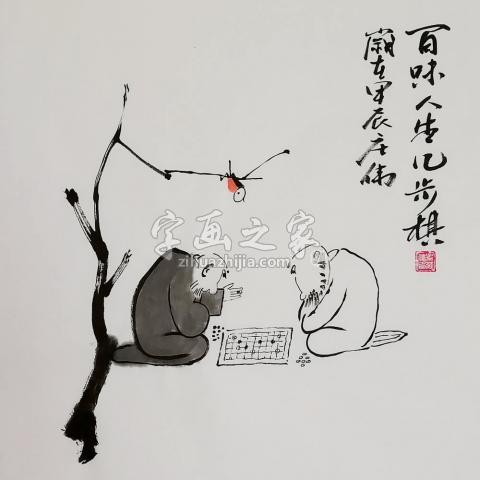 百味人生几步棋
歲在甲辰庄伟
字画之家
zihunzhijia.com